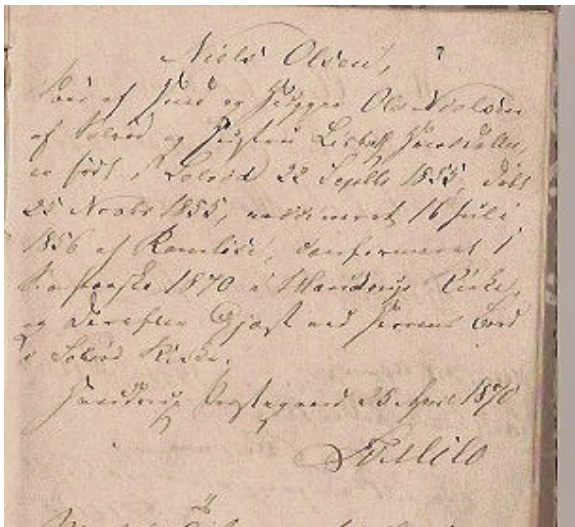 Niels Olsen,
Søn af Huus og Hygger Ole Nielsen
af Solrød og Hustru Lisbeth
er født i Solrød 22 Septbr 1855, døbt
25 Novbr 1855, vaccineret 16 Juli
1856 af Ramlöse, confirmeret 1
Sø paaske 1870 i Havdrup Kirke,
og derefter Gjæst ved Herrens Bord
i Solrød Kirke.
Havdrup Præstegaard 25 April 1870